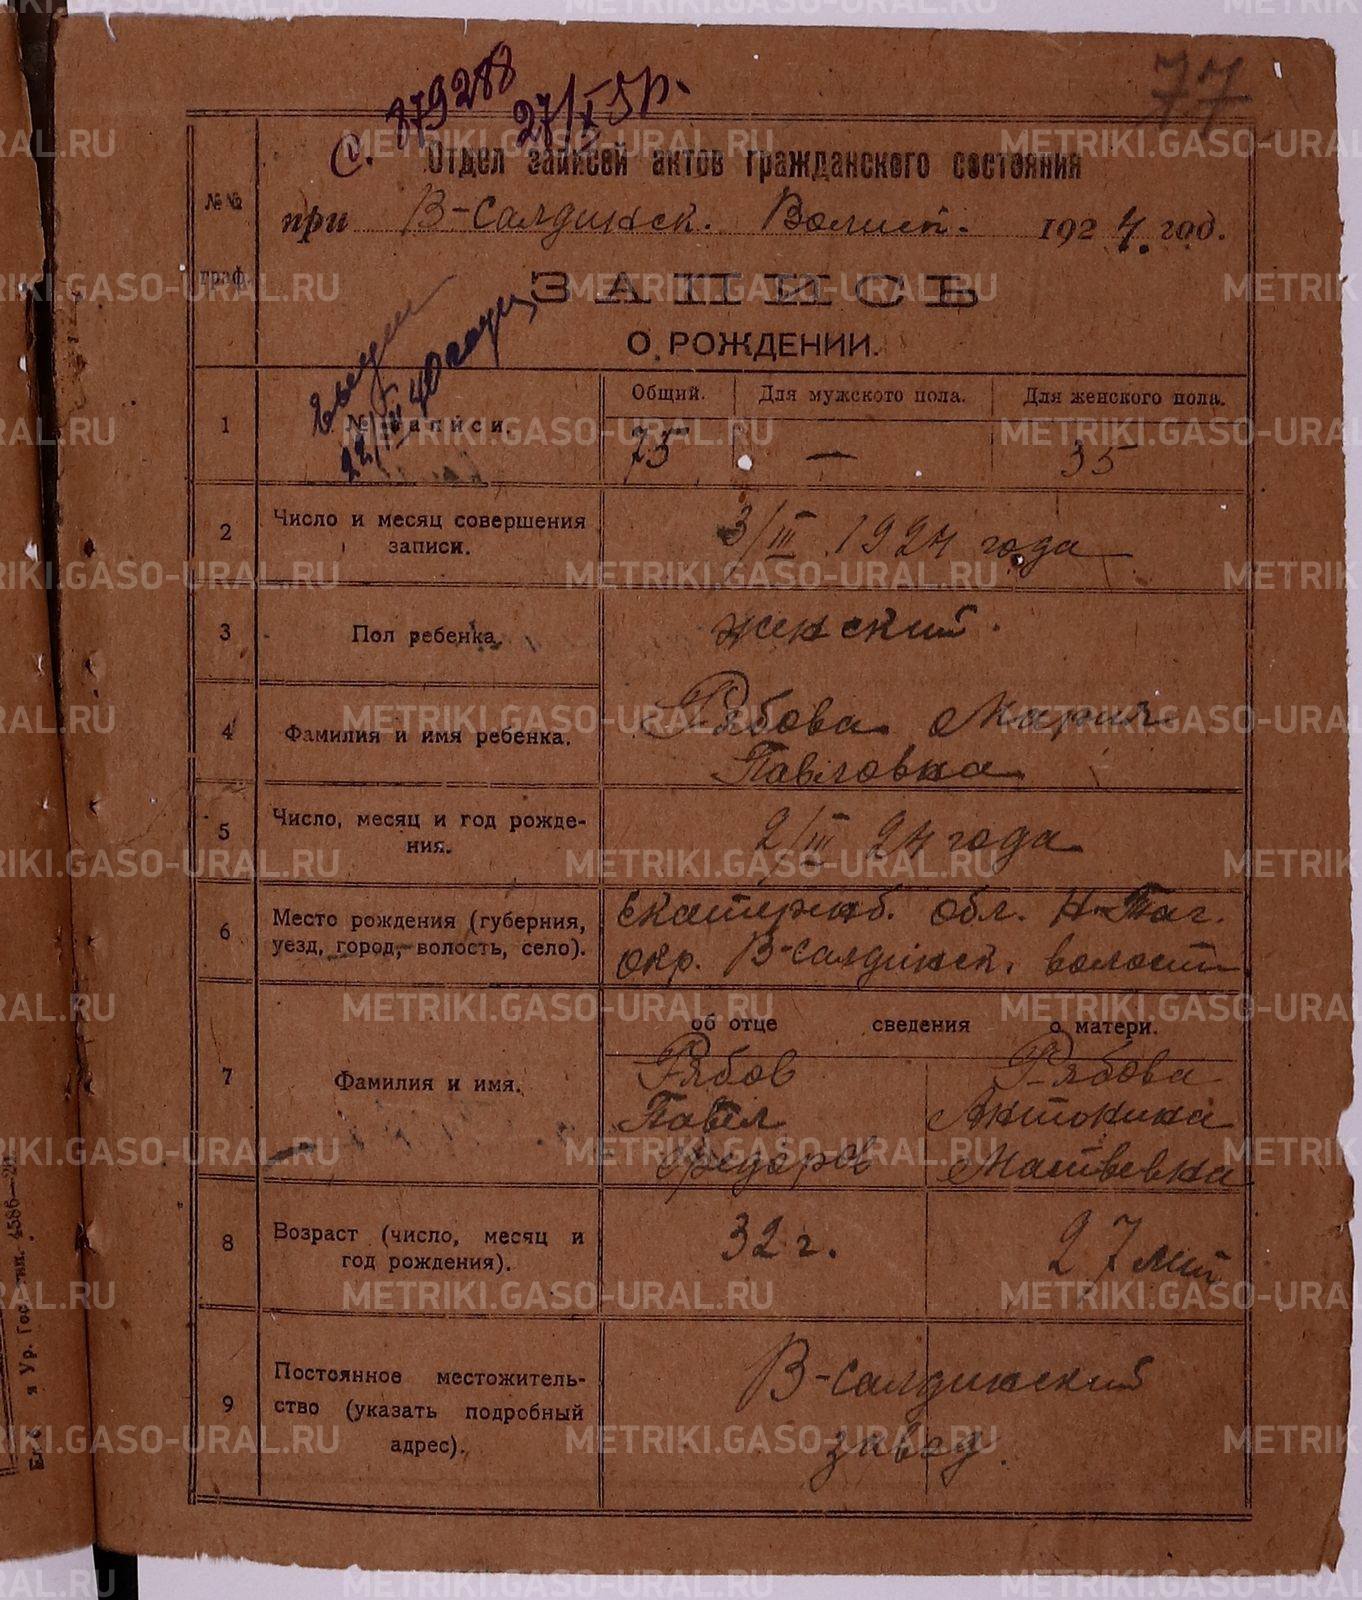 77
С. 379288
27/X 5
Отдел записей актов гражданского состояния
при В-Салдинск. Волисп. 1924. год.
№№ граф.
ЗАПИСЬ
О РОЖДЕНИИ.
22/III 40
1
№ записи.
Общий. Для мужского пола. Для женского пола.
75 — 35
2
Число и месяц совершения
записи.
3/III 1924 года
3
Пол ребенка.
женский.
4
Фамилия и имя ребенка.
Рябова Мария
Павловна
5
Число, месяц и год рожде-
ния.
2/III 24 года
6
Место рождения (губерния,
уезд, город, волость, село).
Екатеринб. Обл. Н-Таг.
окр. В-Салдинск. волости
об отце сведения о матери.
7
Фамилия и имя.
Рябов
Павел
Федоров
Рябова
Антонина
Матвевна
8
Возраст (число, месяц и
год рождения).
32 г.
27 лет
9
Постоянное местожитель-
ство (указать подробный
адрес).
В-Салдинский
завод.
METRIKI.GASO-URAL.RU